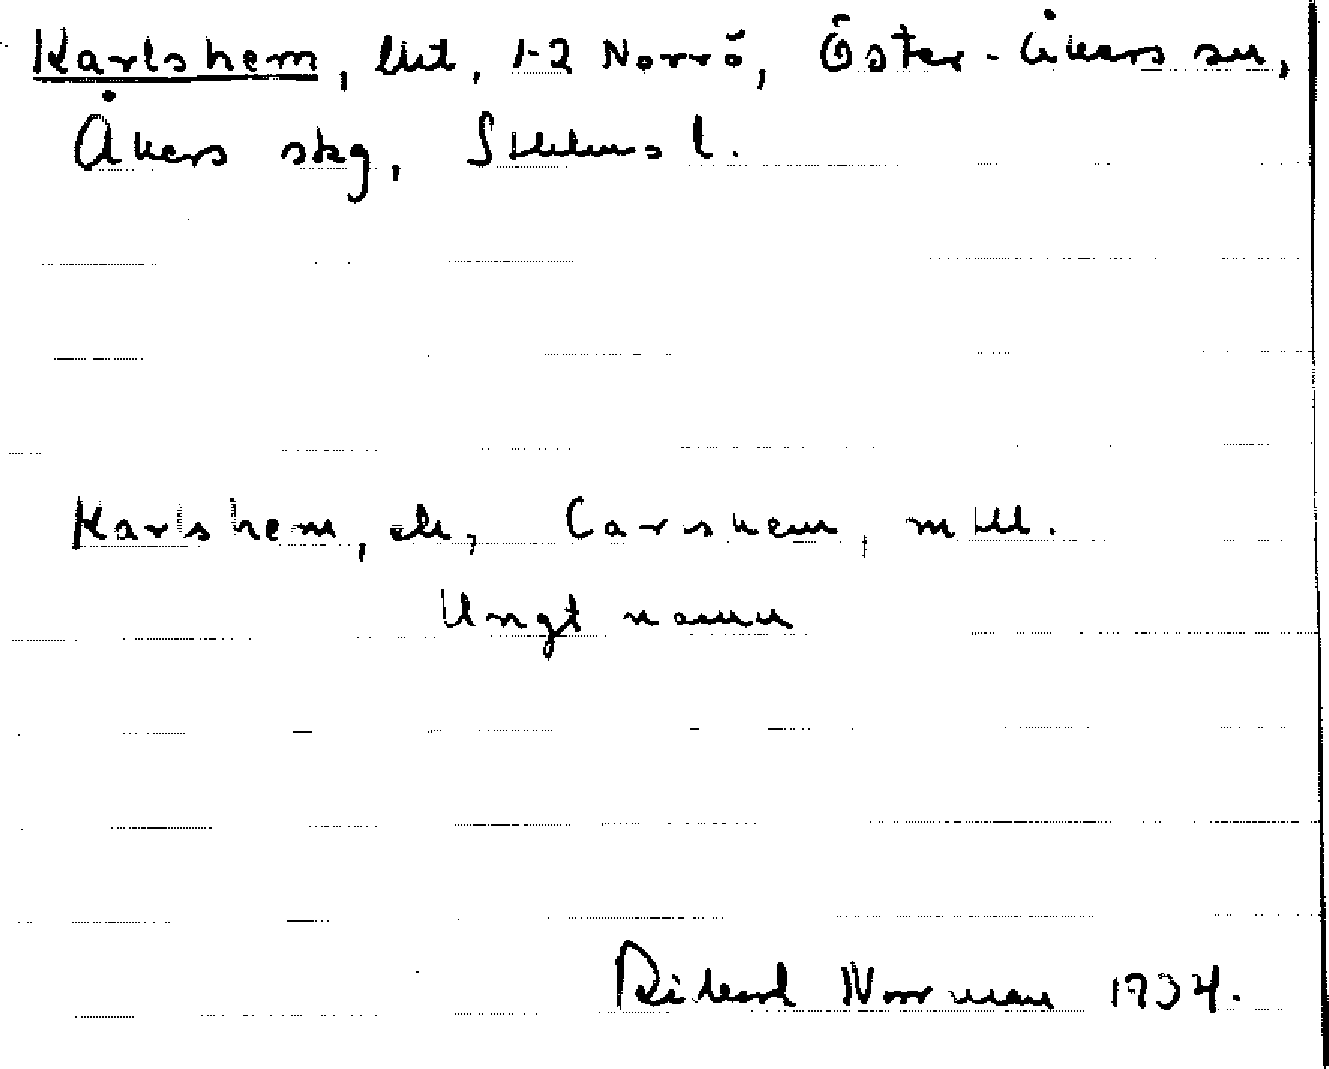 Karlshem, lht, 1-2 Norrö, Öster-Åkers sn,
Åkers skg, Sthlms l.
Karlshem, Carshem,
Ungt namn
Rikard Norrman 1934.